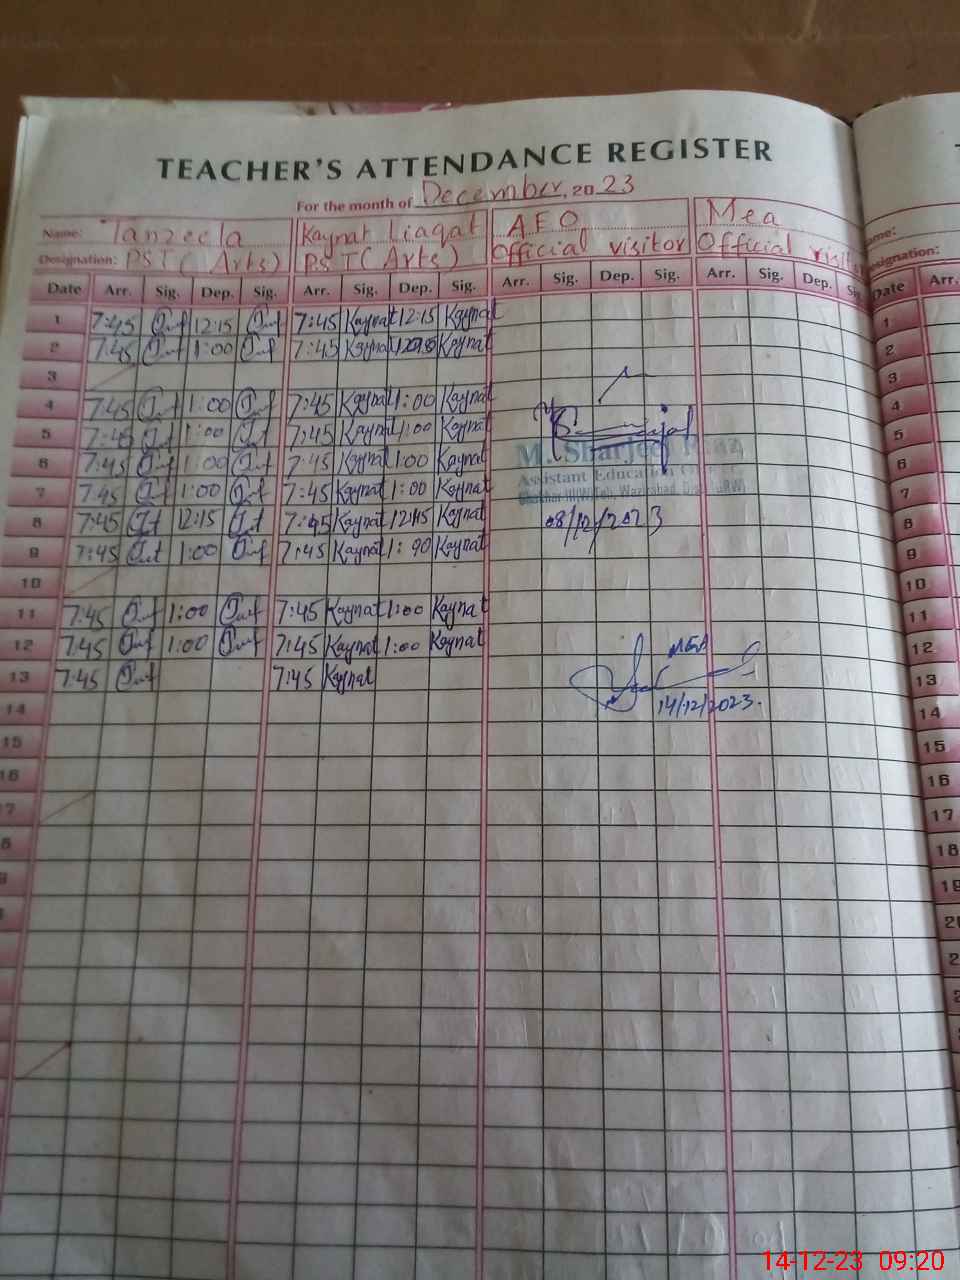 TEACHER'S ATTENDANCE REGISTER
For the month of December, 2023
Name: Tanzeela Kaynat Liaqat AEO Mea
Designation: PST (Arts) PST (Arts) Official visitor Official
Date Arr. Sig. Dep. Sig. Arr. Sig. Dep. Sig. Arr. Sig. Dep. Sig. Arr. Sig. Dep. Date Arr.
1 7:45 12:15 7:45 Kaynat 12:15 Kaynat 1
2 7:45 1:00 7:45 Kaynat Kaynat 2
3 3
4 7:45 1:00 7:45 Kaynat 1:00 Kaynat 4
5 7:45 1:00 7:45 Kaynat 1:00 Kaynat 5
6 7:45 1:00 7:45 Kaynat 1:00 Kaynat M. Sharjeel 6
7 7:45 1:00 7:45 Kaynat 1:00 Kaynat Assistant Education 7
8 7:45 12:15 7:45 Kaynat 12:15 Kaynat 08/12/2023 8
9 7:45 1:00 7:45 Kaynat 1:00 Kaynat 9
10 10
11 7:45 1:00 7:45 Kaynat 1:00 Kaynat 11
12 7:45 1:00 7:45 Kaynat 1:00 Kaynat MEA 12
13 7:45 7:45 Kaynat 14/12/2023. 13
14 14
15 15
16 16
17
18
14-12-23 09:20